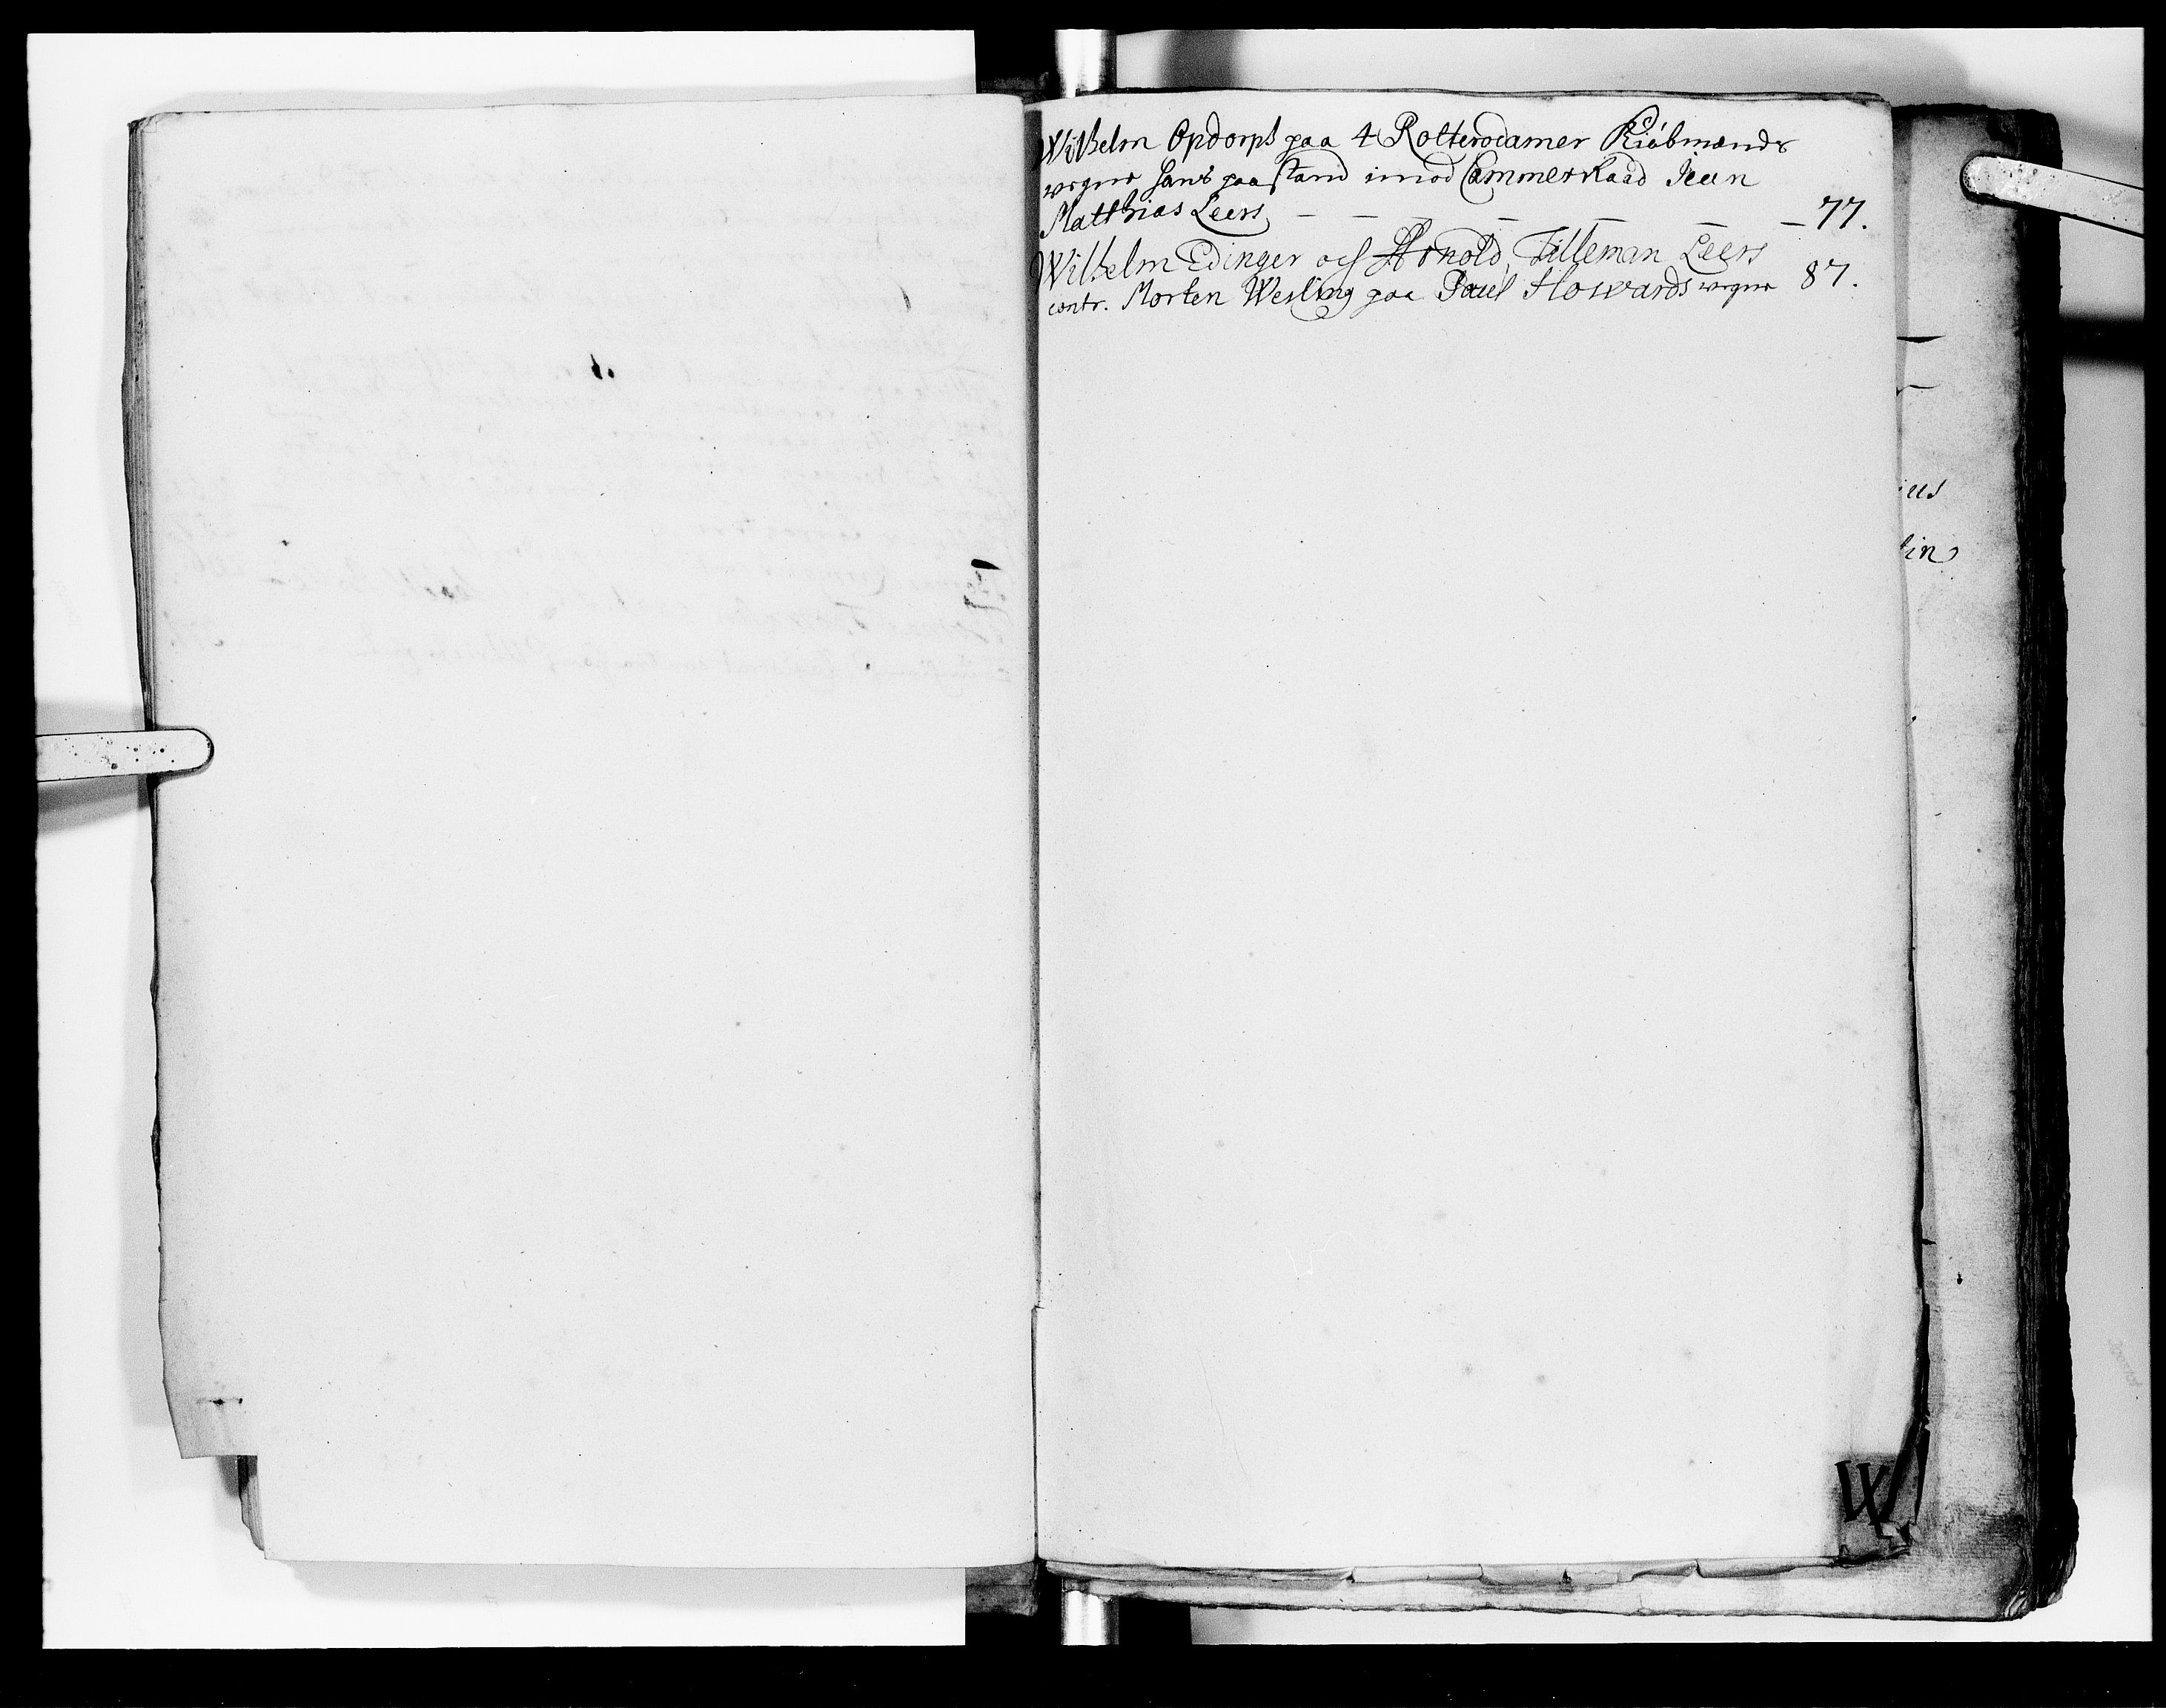 Wilhelm Opdorph paa 4 Rotterodamer Kiøbmænds
vegne hans paastand imod Cammerraad Jean
Matthias Leers — — — — — — 77.
Wilhelm Edinger och Arnold Tilleman Leers
contr. Morten Wesling paa Paul Howards vegne 87.
W